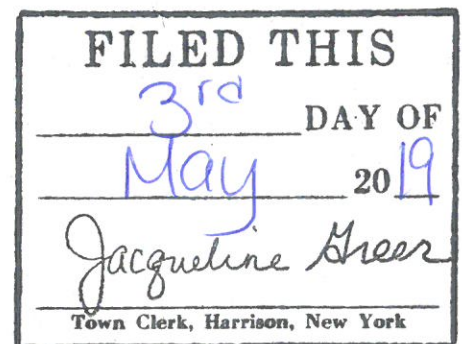 FILED THIS
3rd DAY OF
May 2019
Jacqueline Greer
Town Clerk, Harrison, New York